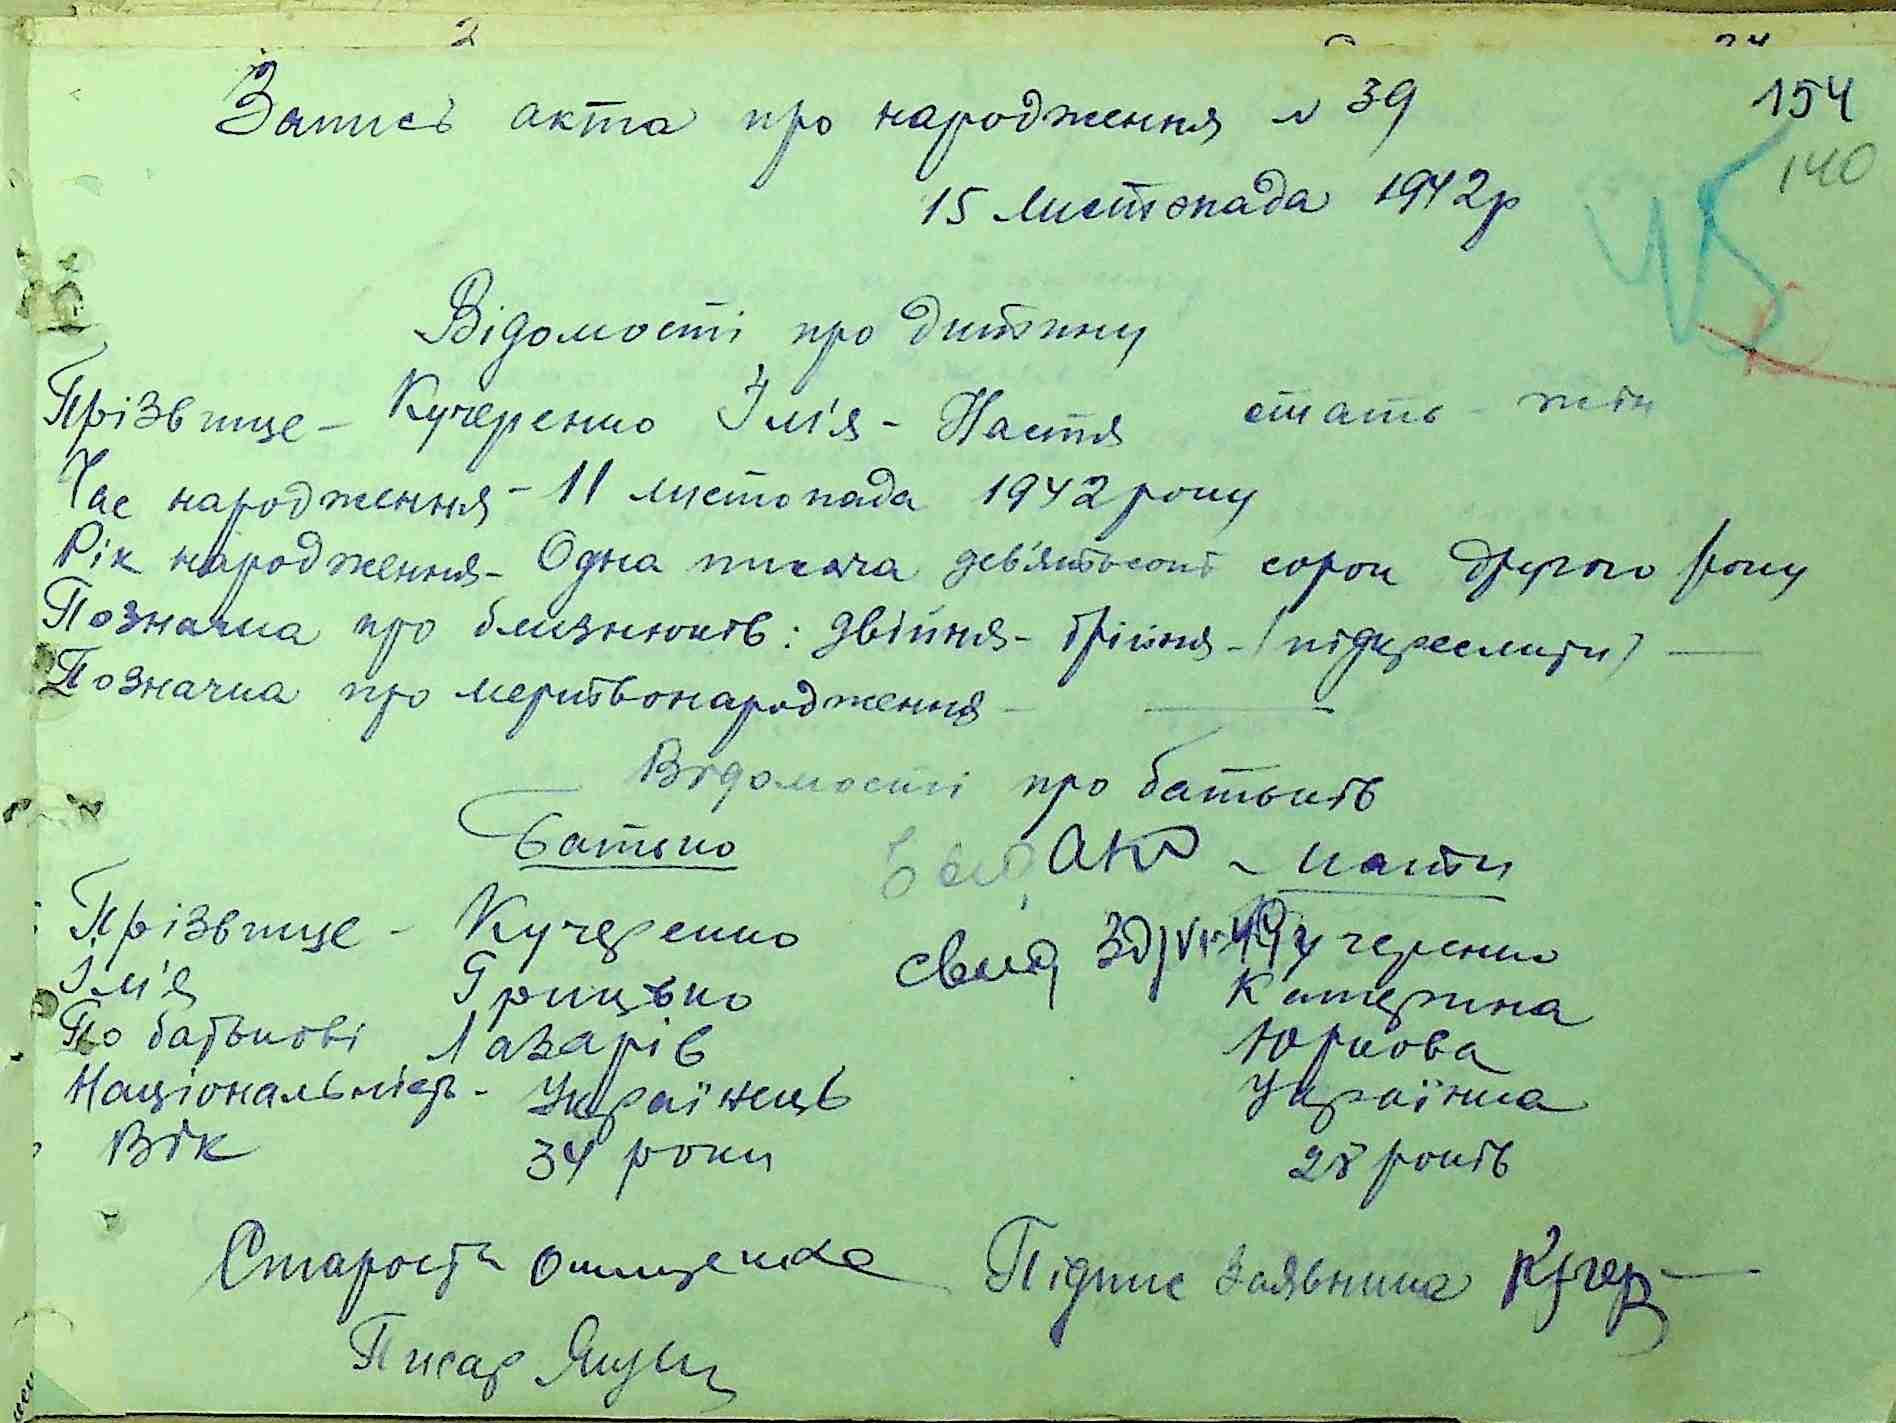 154
Запись акта про народження N 39
140
15 Листопада 1942р
Відомості про дитину
Прізвище - Кучеренко Ім'я - Настя стать - жін
Час народження - 11 листопада 1942 року
Рік народження - Одна тисяча дев'ятьсот сорок другого року
Позначка про близнюків: двійня - трійня - (підкреслити) —
Позначка про мертвонародження - —
Відомості про батьків
Батько Мати
Прізвище - Кучеренко Кучеренко
Ім'я Грицько Катерина
По батькові Лазарів Юркова
Національність - Українець Українка
Вік 34 роки 28 років
Староста Онищенко Підпис Заявника Кучер
Писар